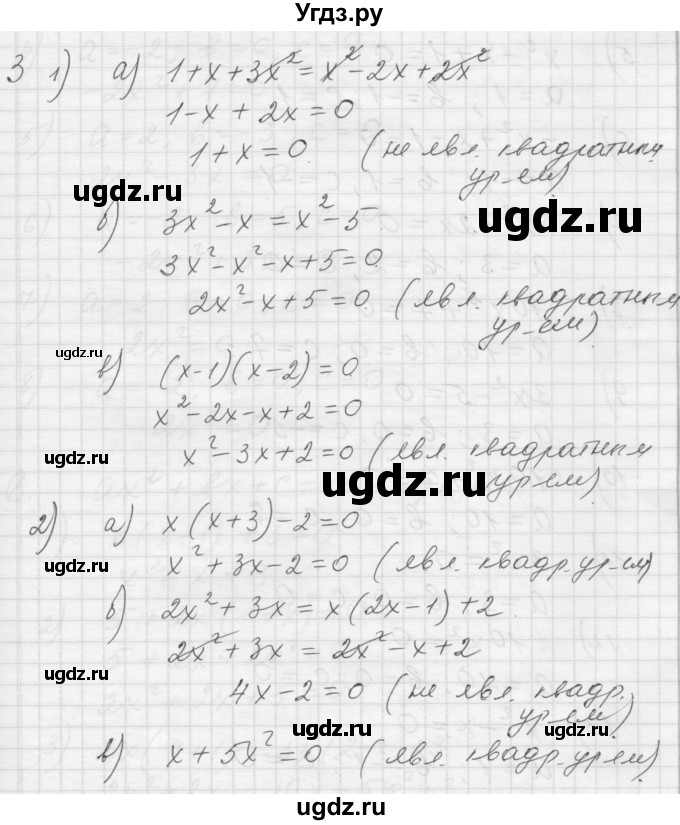 Угдз.ру
3 1) а) 1+x+3x²=x²-2x+2x²
1-x+2x=0
1+x=0 (не явл. квадратным
ур-ем)
ugdz.ru
ugdz.ru
б) 3x²-x=x²-5
3x²-x²-x+5=0
2x²-x+5=0 (явл. квадратным
ур-ем)
ugdz.ru
в) (x-1)(x-2)=0
x²-2x-x+2=0
x²-3x+2=0 (явл. квадратным
ур-ем)
ugdz.ru
ugdz.ru
2) а) x(x+3)-2=0
x²+3x-2=0 (явл. квадр. ур-ем)
ugdz.ru
б) 2x²+3x=x(2x-1)+2
2x²+3x=2x²-x+2
ugdz.ru
4x-2=0 (не явл. квадр.
ур-ем)
ugdz.ru
ugdz.ru
в) x+5x²=0 (явл. квадр. ур-ем)
ugdz.ru